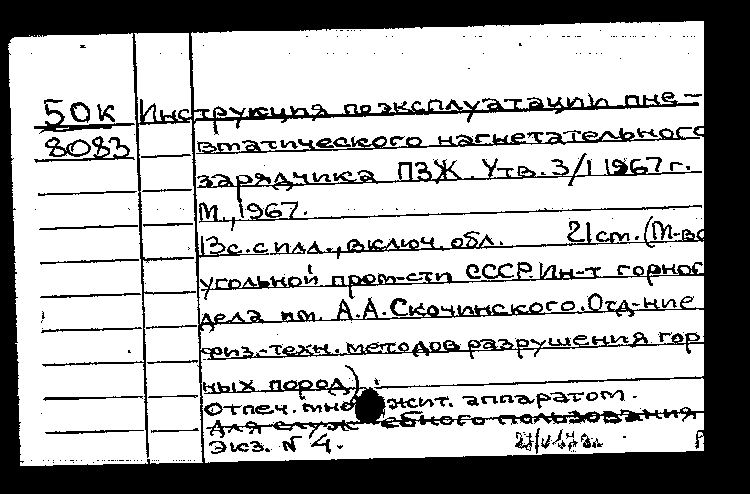 50К Инструкция по эксплуатации пне-
8083 вматического нагнетательного
зарядчика ПЗЖ. Утв. 3/I 1967г.
М., 1967.
13с. с илл., включ. обл. 21cm. (М-во
угольной пром-сти СССР. Ин-т горног
дела им. А.А.Скочинского. Отд-ние
физ.-техн. методов разрушения гор
ных пород).
Отпеч. множит. аппаратом.
Для служебного пользования
Экз. N 4.